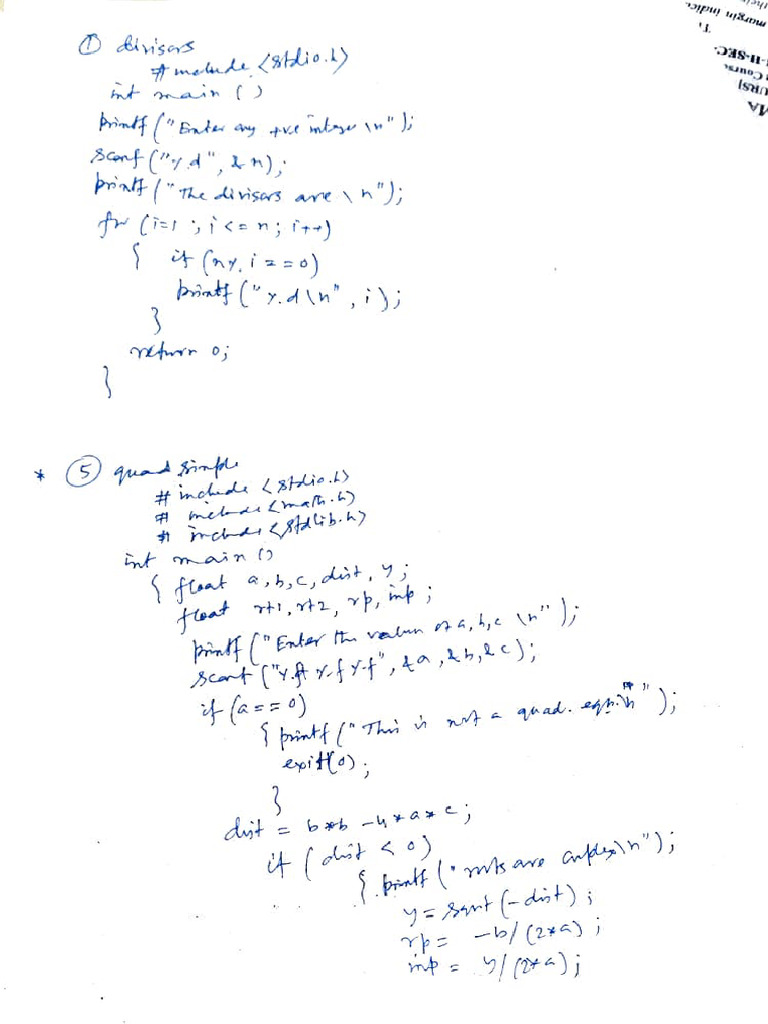 ① divisors
#include <stdio.h>
int main ()
printf ("Enter any +ve integer \n");
scanf ("%d", &n);
printf ("The divisors are \n");
for (i=1 ; i<=n; i++)
{ if (n%i==0)
printf ("%d\n", i);
}
return 0;
}
* ⑤ quad simple
# include <stdio.h>
# include <math.h>
# include <stdlib.h>
int main ()
{ float a,b,c, dist, y;
float rt1, rt2, rp, imp;
printf ("Enter the values of a,b,c \n");
scanf ("%f %f %f", &a, &b, &c);
if (a==0)
{ printf ("This is not a quad. eqn.\n");
exit(0);
}
dist = b*b -4*a*c;
if (dist < 0)
{ printf ("rots are complex\n");
y = sqrt (-dist);
rp = -b/(2*a);
imp = y/(2*a);
margin indice
T,
II-SEC.
Cours
URS]
MA